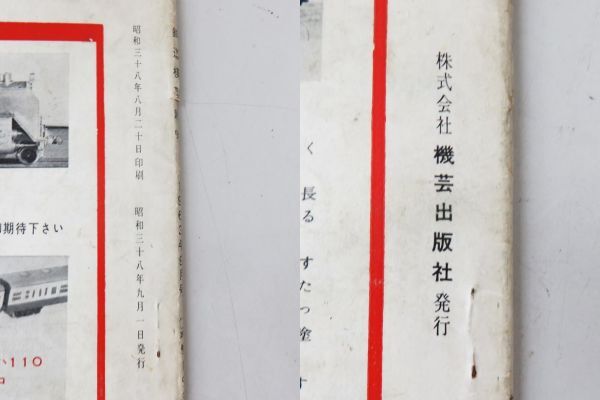 昭和三十八年八月二十日印刷　昭和三十八年九月一日発行
期待下さい
110
株式会社 機芸出版社 発行
く 長る すたっ塗 す